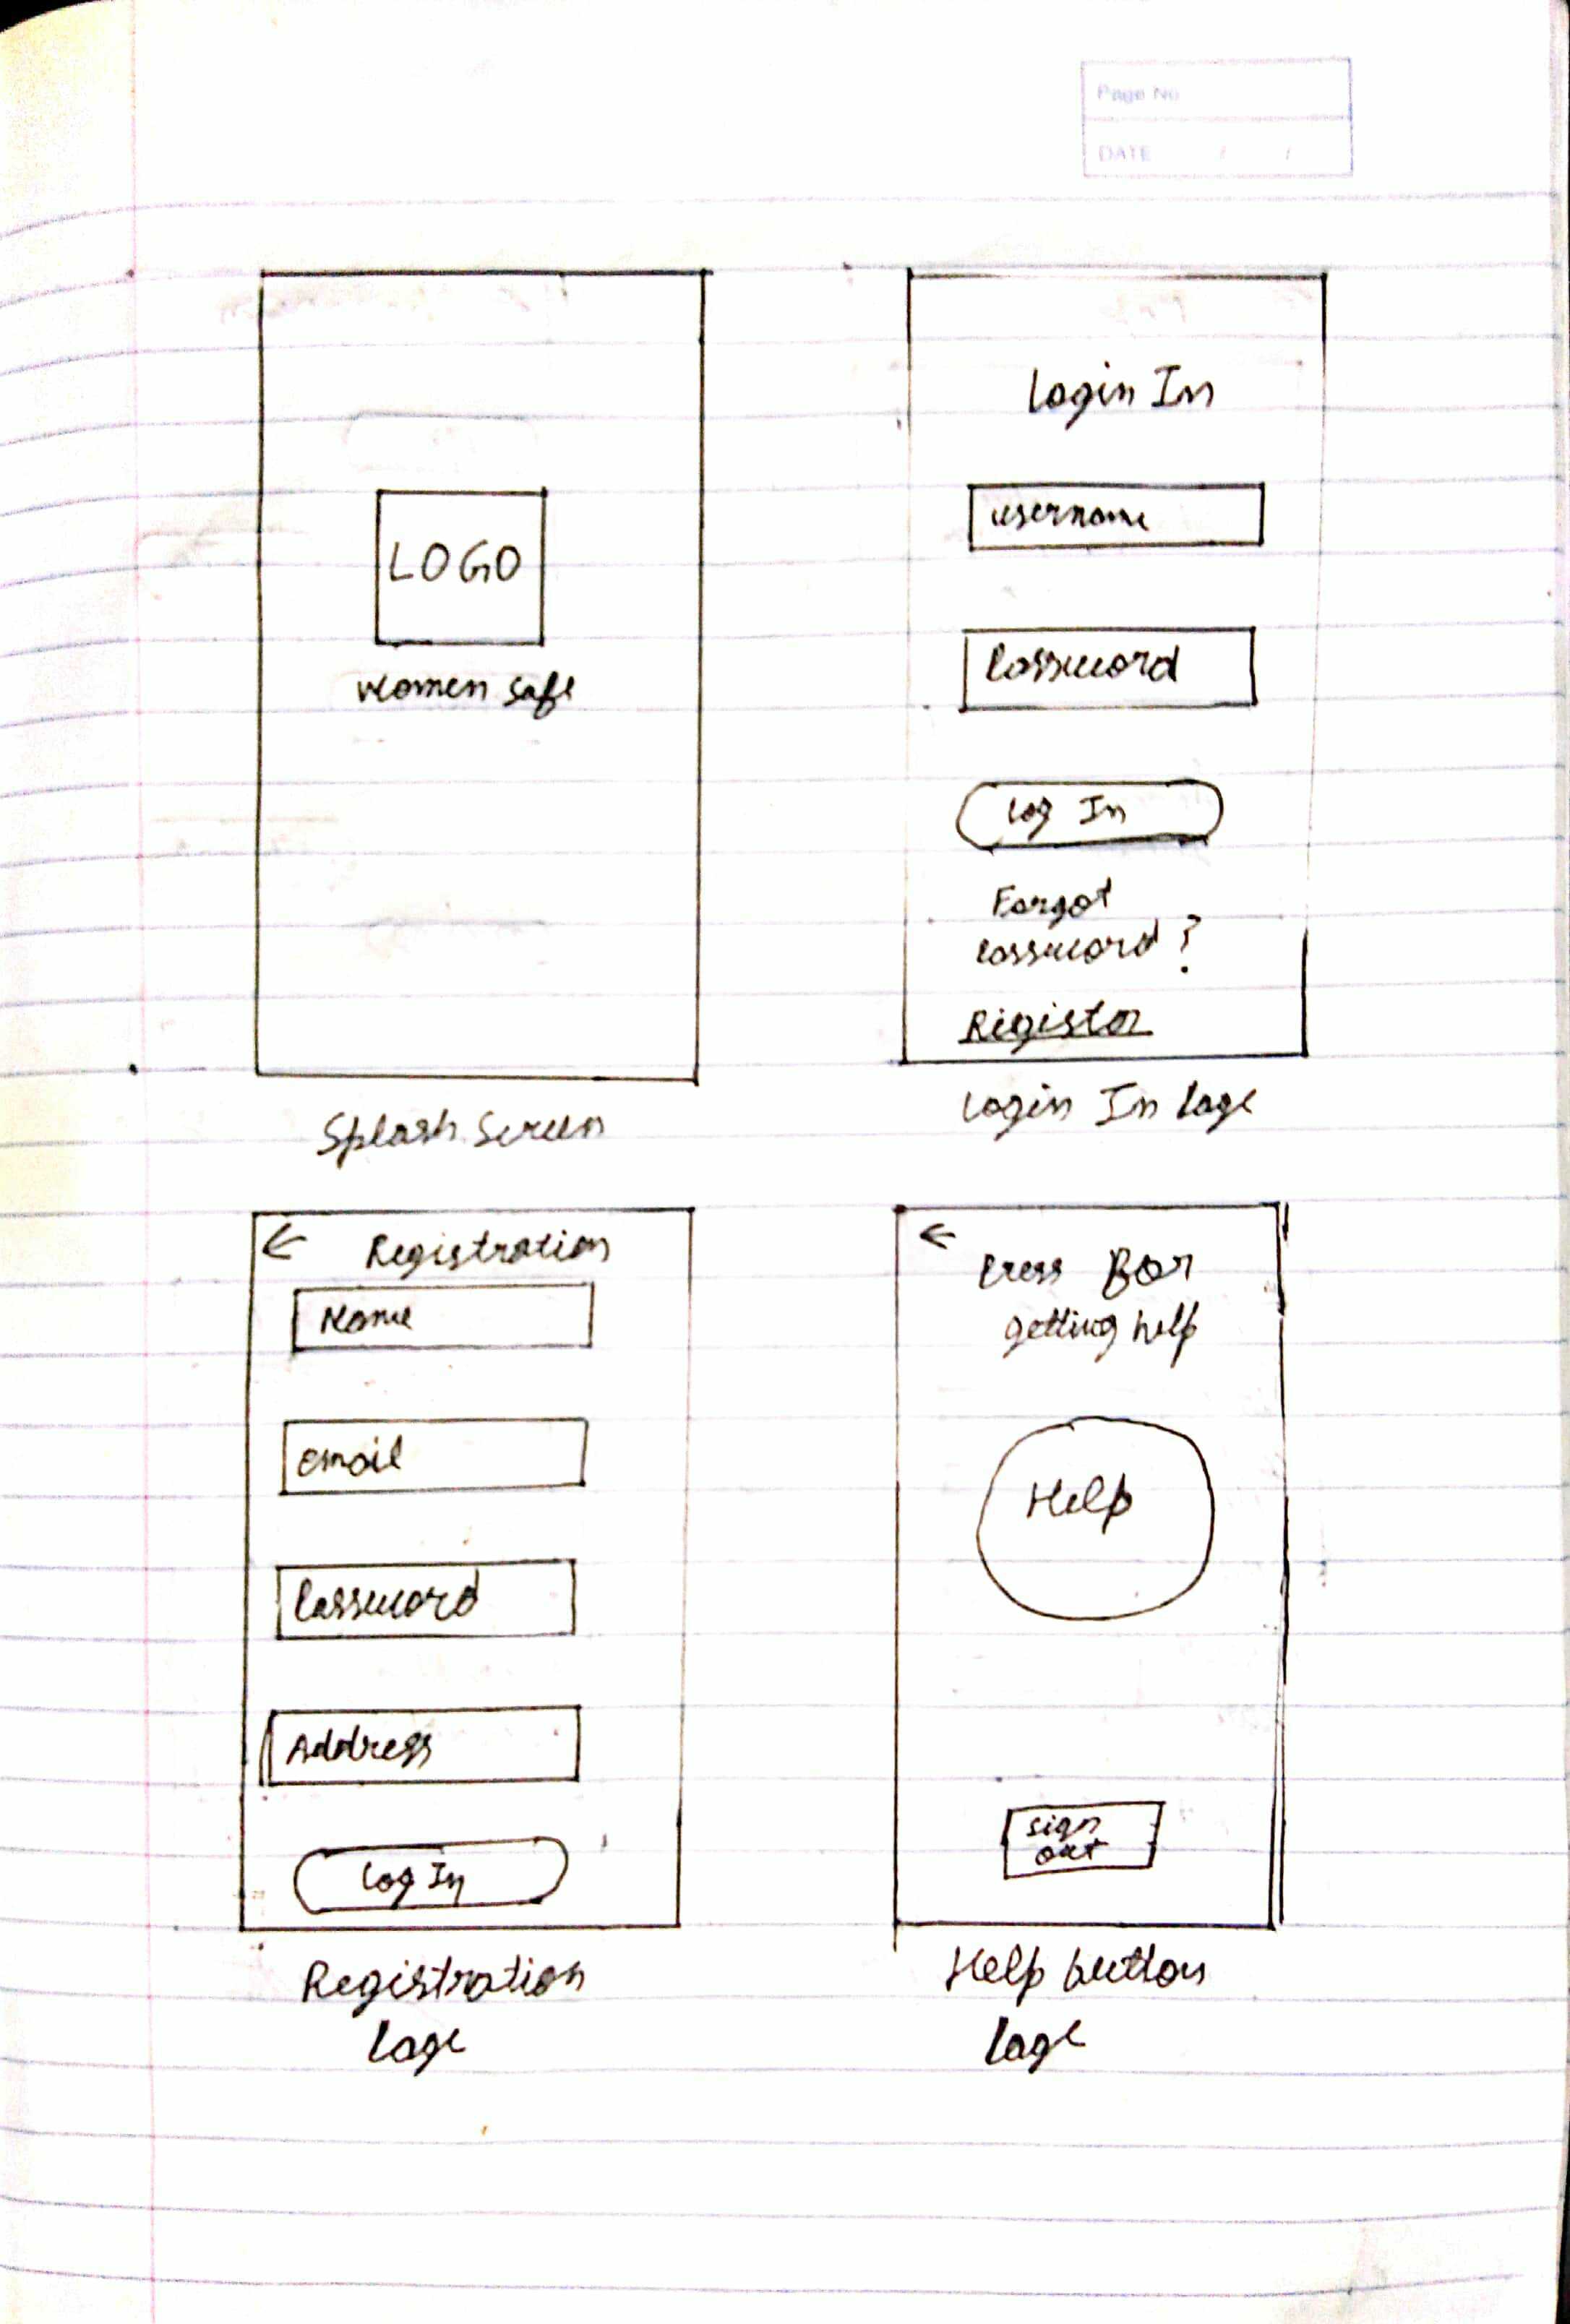 Page No
DATE / /
LOGO
women safe
Splash Screen
Login In
username
Password
Log In
Forgot
password ?
Register
Login In Page
← Registration
Name
email
Password
Address
Log In
Registration
Page
←
Press For
getting help
Help
sign
out
Help button
Page